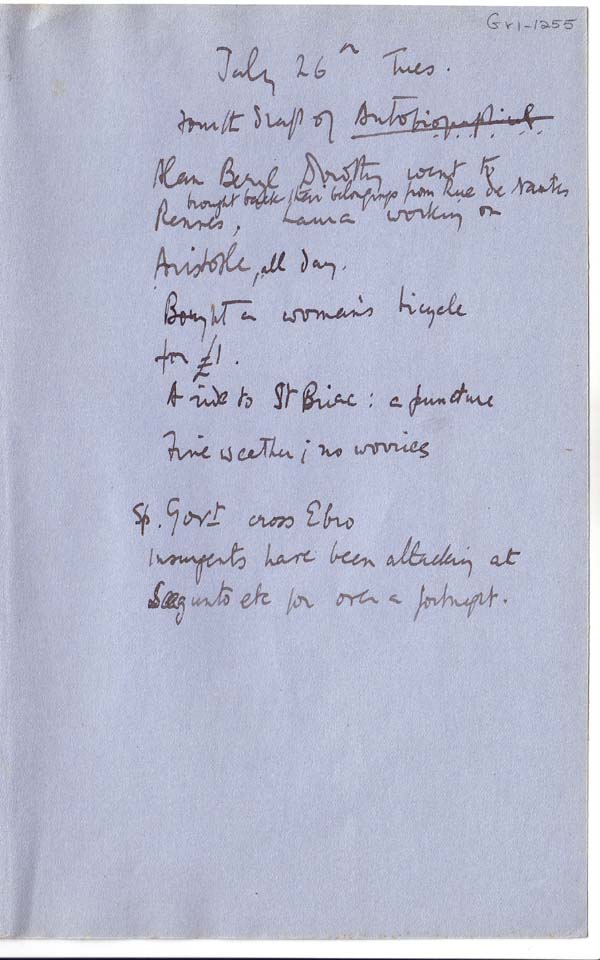 Gr1-1255
July 26th Tues.
Fourth draft of Autobiographical
Alan Beryl Dorothy went to
brought back their belongings from Rue de Nantes
Rennes, Laura working on
Aristotle, all day.
Bought a woman's bicycle
for £1.
A ride to St Briac: a puncture
Fine weather; no worries
Sp. Govt cross Ebro
Insurgents have been attacking at
Sagunto etc for over a fortnight.